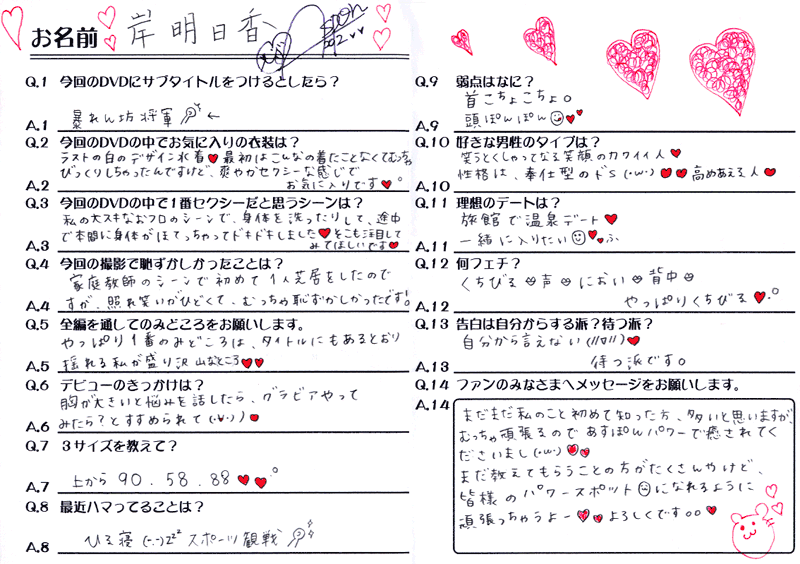 お名前 岸明日香
Q.1 今回のDVDにサブタイトルをつけるとしたら？
A.1 暴れん坊将軍 ←
Q.2 今回のDVDの中でお気に入りの衣装は？
ラストの白のデザイン水着♥最初はこんなの着たことなくてむっちゃ
びっくりしちゃったんですけど、爽やかセクシーな感じで
A.2 お気に入りです♥。
Q.3 今回のDVDの中で1番セクシーだと思うシーンは？
私の大スキなおフロのシーンで、身体を洗ったりして、途中
で本間に身体がほてっちゃってドキドキしました♥そこも注目して
A.3 みてほしいです♥
Q.4 今回の撮影で恥ずかしかったことは？
家庭教師のシーンで初めて1人芝居をしたので
A.4 すが、照れ笑いがひどくて、むっちゃ恥ずかしかったです!。
Q.5 全編を通してのみどころをお願いします。
やっぱり1番のみどころは、タイトルにもあるとおり
A.5 揺れる私が盛り沢山なところ♥♥
Q.6 デビューのきっかけは？
胸が大きいと悩みを話したら、グラビアやって
A.6 みたら?とすすめられて(･ω･))♥
Q.7 3サイズを教えて？
A.7 上から 90.58.88♥♥。
Q.8 最近ハマってることは？
A.8 ひる寝(-.-)zzz スポーツ観戦
Q.9 弱点はなに？
首こちょこちょ。
A.9 頭ぽんぽん♥♥
Q.10 好きな男性のタイプは？
笑うとくしゃってなる笑顔のカワイイ人♥
A.10 性格は、奉仕型のドS(･ω･)♥♥高めあえる人♥
Q.11 理想のデートは？
旅館で温泉デート♥
A.11 一緒に入りたい♥♥ふ
Q.12 何フェチ？
くちびる♡声♡におい♡背中♡
A.12 やっぱりくちびる♥。
Q.13 告白は自分からする派？待つ派？
自分から言えない(///ロ//)♥
A.13 待つ派です。
Q.14 ファンのみなさまへメッセージをお願いします。
A.14 まだまだ私のこと初めて知った方、多いと思いますが、
むっちゃ頑張るので あすぽんパワーで癒されてく
ださいまし(･ω･)♥♥
まだ教えてもらうことの方がたくさんやけど、
皆様のパワースポットになれるように
頑張っちゃうよー♥♥よろしくです○○♥